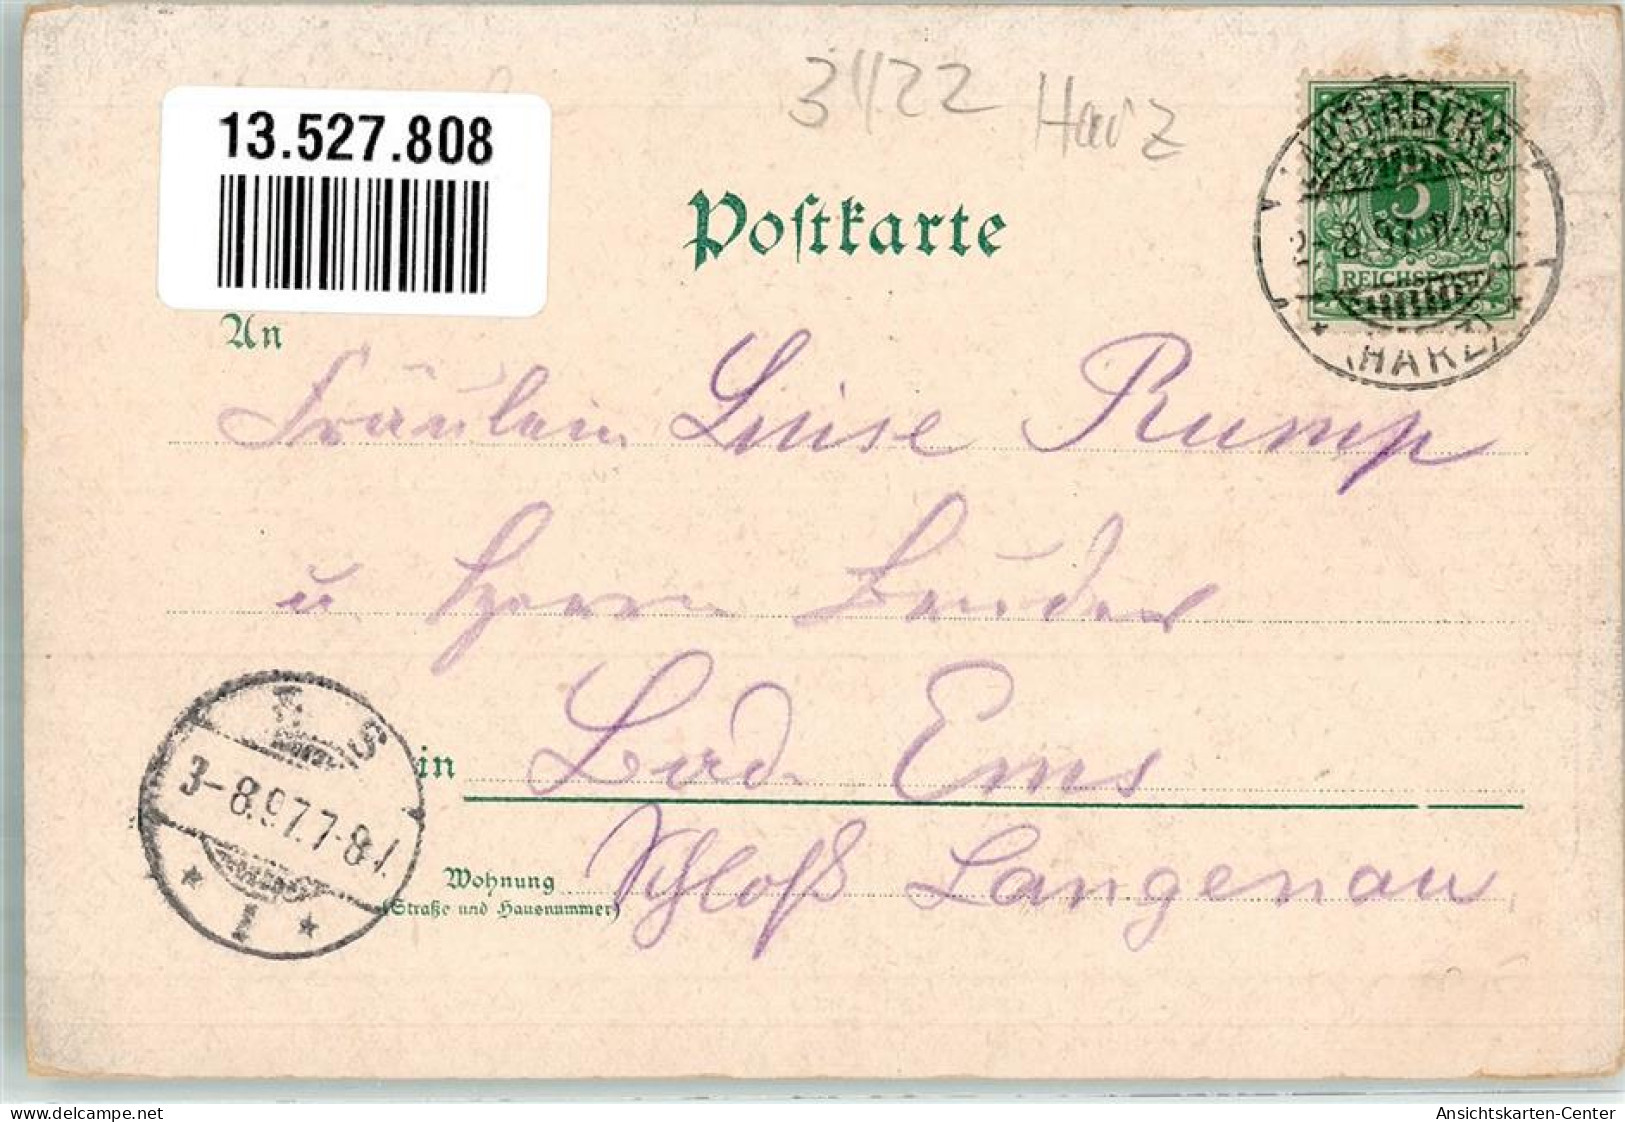 3422 Harz
13.527.808
LAUTERBERG
5
8.97. 11-12V.
REICHSPOST
(HARZ)
Postkarte
An
Fräulein Luise Rump
u. Herrn
in Bad Ems
Wohnung Schloß Langenau
(Straße und Hausnummer)
EMS
3-8.97.7-8V.
1
delcampe.net
Ansichtskarten-Center